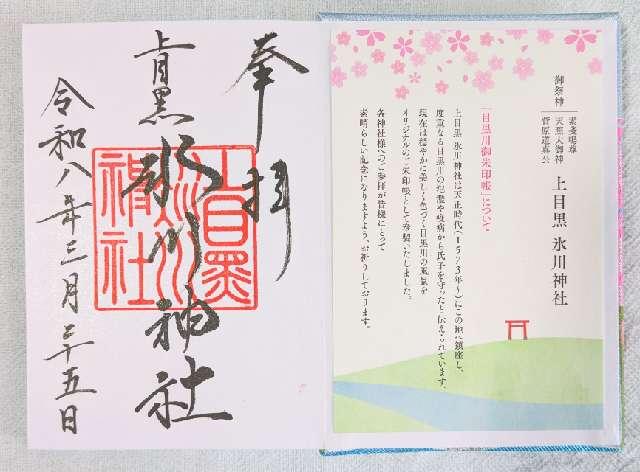 御祭神
素戔嗚尊
天照大御神
菅原道真公
上目黒 氷川神社
「目黒川御朱印帳」について
上目黒氷川神社は天正時代(1573年~)にこの地に鎮座し、
度重なる目黒川の氾濫や疫病から氏子を守ったと伝えられています。
現在は穏やかに美しく色づく目黒川の風景を
オリジナルのご朱印帳として奉製いたしました。
各神社様へのご参拝が皆様にとって
素晴らしい記念になりますよう、お祈りしております。
奉拝
上目黒氷川神社
上目黒
氷川
神社
令和八年三月二十五日